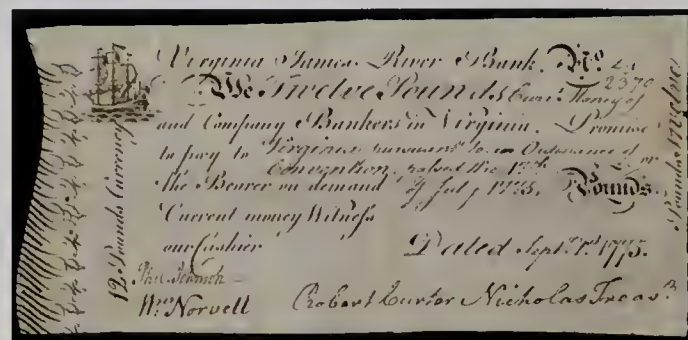 Virginia James River Bank. No.
2370
We Twelve Pounds Curr.t Money of
and Company Bankers in Virginia. Promise
to pay to Virginia pursuant to an Ordinance of
Convention, passed the 17th or
the Bearer on demand of July 1775. Pounds
Current money Witness
our Cashier
Dated Sept.r 1st 1775.
Wm Norvell Robert Carter Nicholas Trear.
12 Pounds Currency
Pounds Twelve